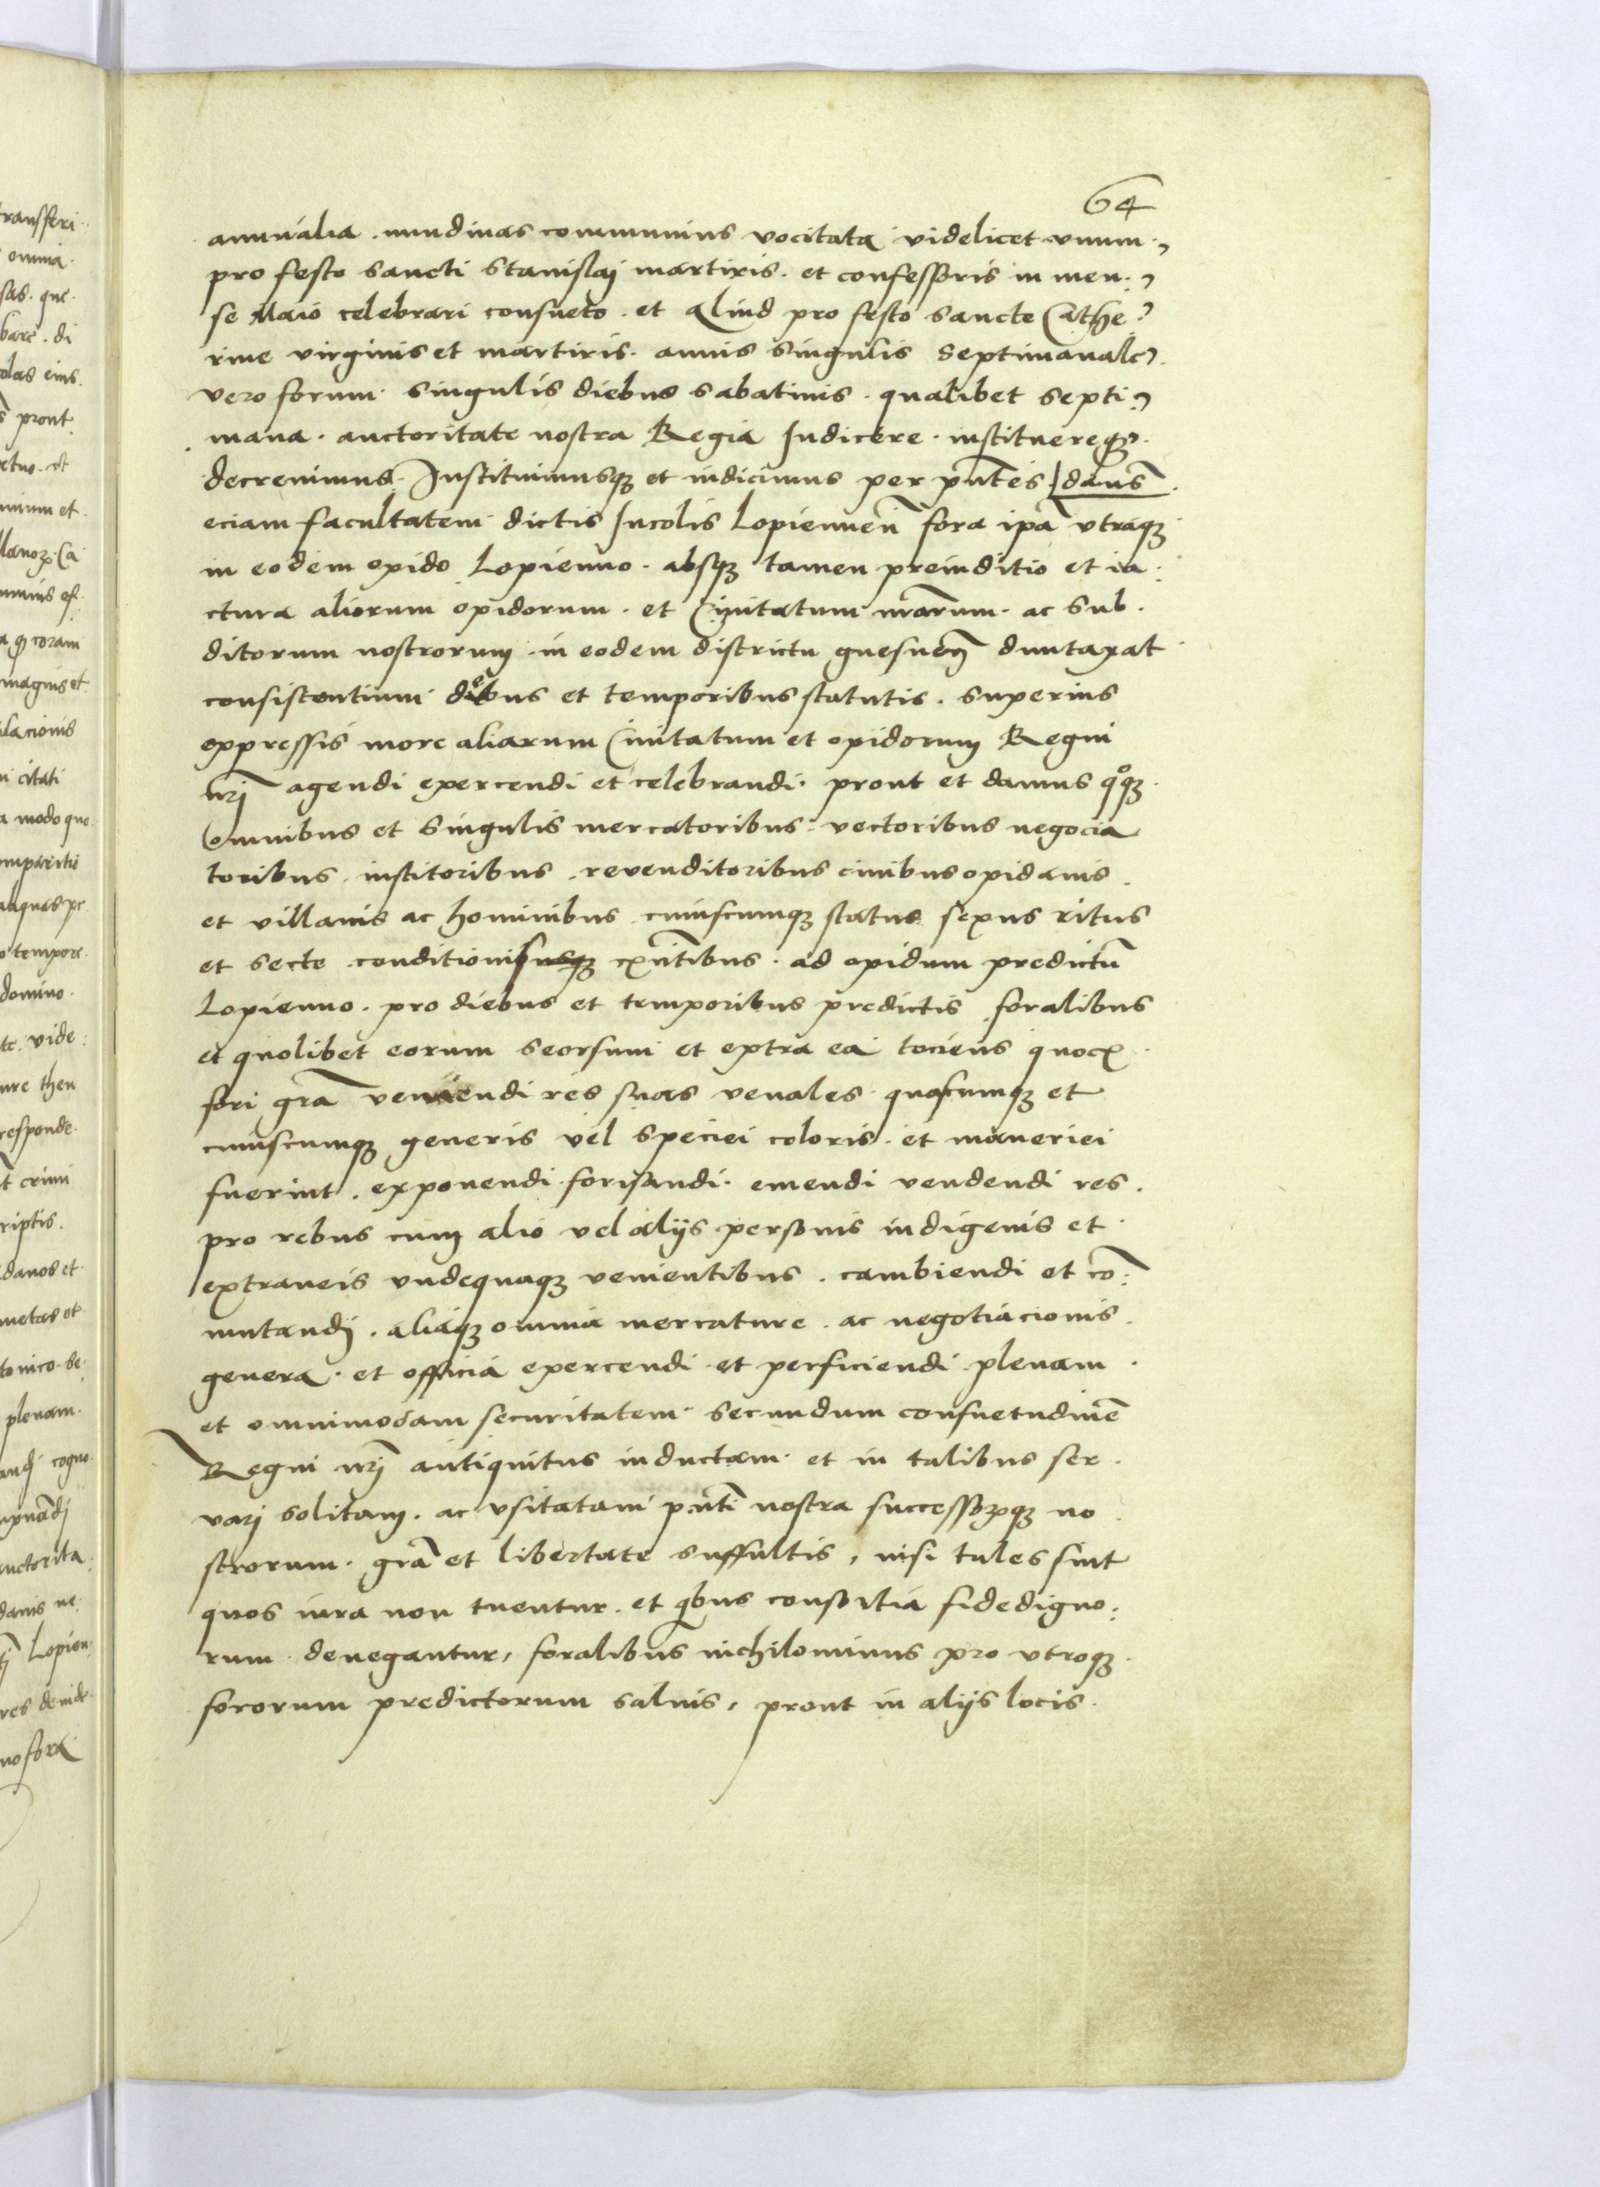 64
annualia . nundinas communius vocitata videlicet vnum
pro festo sancti Stanislaj martiris . et confessoris in men:
se Maio celebrari consueto . et aliud pro festo sancte Cathe
rine virginis et martiris . annis singulis Septimanale .
vero forum singulis diebus sabatinis . qualibet septi
mana . auctoritate nostra Regia Indicere . instituereqꝫ .
decreuimus . Instituimusqꝫ et indicimus per pn̄tes / dan̄s .
eciam facultatem dictis Incolis Lopiennen̄ fora ip̄a vtraqꝫ
in eodem opido Lopienno . absqꝫ tamen preiuditio et ia:
ctura aliorum opidorum . et Ciuitatum nr̄arum . ac sub .
ditorum nostrorum . in eodem districtu gnesnen̄ duntaxat
consistentium diebus et temporibus statutis . superius
expressis more aliarum Ciuitatum et opidorum Regni
nr̄j agendi exercendi et celebrandi . prout et damus qͦqꝫ .
omnibus et singulis mercatoribus . vectoribus negocia
toribus . institoribus . reuenditoribus ciuibus opidanis .
et villanis ac hominibus cuiuscumqꝫ status sexus ritus
et secte conditionis exn̄tibus . ad opidum predictū
Lopienno . pro diebus et temporibus predictis foralibus
et quolibet eorum seorsum et extra ea tociens quoc̄
fori grā veniendi res suas venales . quascumqꝫ et
cuiuscumqꝫ generis vel speciei coloris . et maneriei
fuerint . exponendi forisandi . emendi vendendi res .
pro rebus cum alio vel alijs personis indigenis et .
extraneis vndequaqꝫ venientibus . cambiendi et cō:
mutandj . aliaqꝫ omnia mercature . ac negotiacionis .
genera . et officia exercendi et perficiendi plenam .
et omnimodam securitatem secundum consuetudinē
Regni nr̄j antiquitus inductam . et in talibus ser .
varj solitam . ac vsitatam pn̄ti nostra successoꝝqꝫ no
strorum . grā et libertate suffultis , nisi tales sint
quos iura non tuentur . et qbus consortia fidedigno:
rum denegantur , foralibus nichilominus pro vtroqꝫ .
fororum predictorum saluis , prout in alijs locis .